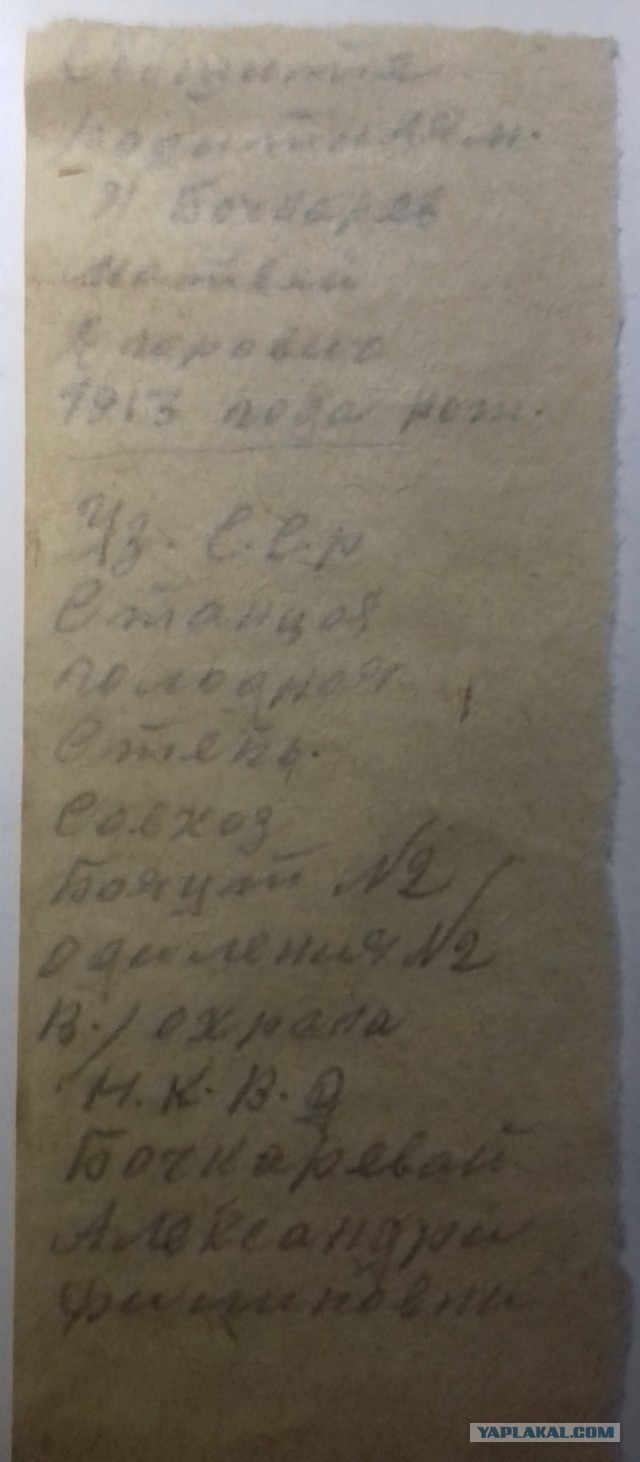 Сообщите
Родитилям.
Я Бочкарев
Матвей
Егорович
1913 года рож.
Уз. С.С.р
Станцоя
голодноя
Степь.
Совхоз
Бояут №2
одиления №2
В./охрана
Н.К.В.Д
Бочкарявой
Александри
Филиповни
YAPLAKAL.COM